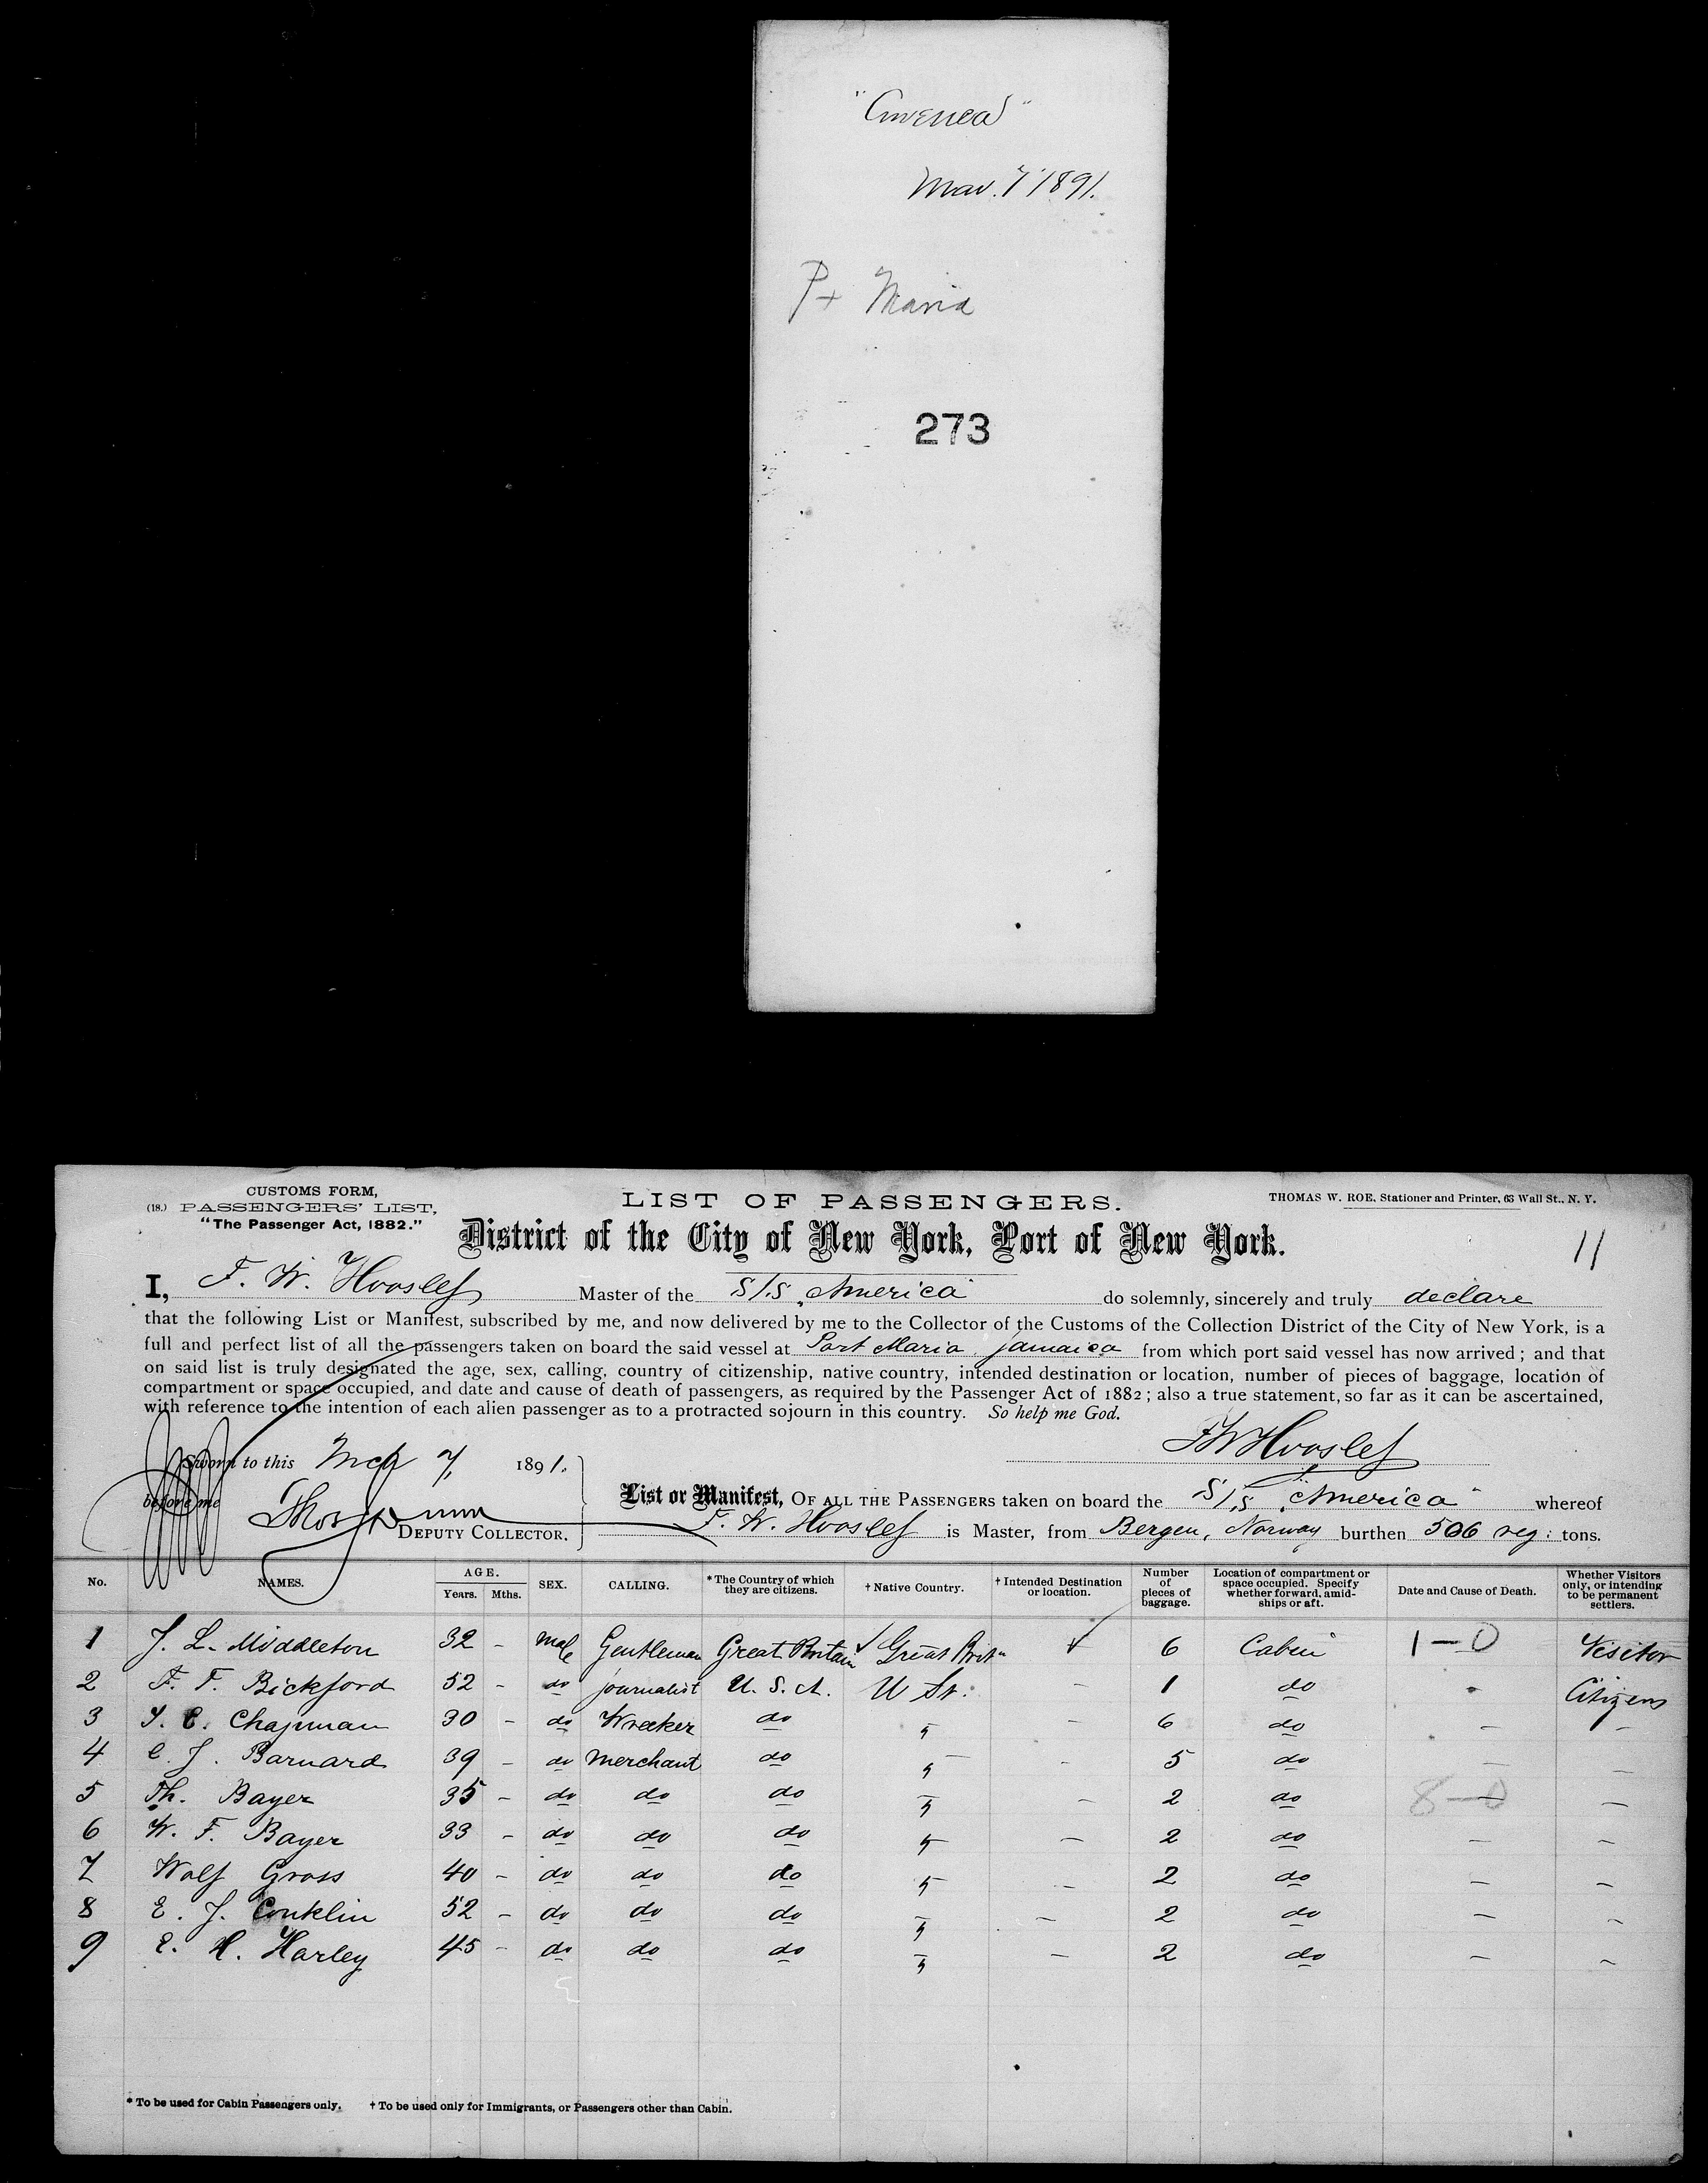 "America"
Mar. 7 1891.
Pt Maria
273
CUSTOMS FORM,
(18.) PASSENGERS' LIST,
"The Passenger Act, 1882."
LIST OF PASSENGERS.
THOMAS W. ROE, Stationer and Printer, 63 Wall St., N. Y.
District of the City of New York, Port of New York.
11
I, F. W. Hvoslef Master of the S/S "America" do solemnly, sincerely and truly declare
that the following List or Manifest, subscribed by me, and now delivered by me to the Collector of the Customs of the Collection District of the City of New York, is a
full and perfect list of all the passengers taken on board the said vessel at Port Maria, Jamaica from which port said vessel has now arrived; and that
on said list is truly designated the age, sex, calling, country of citizenship, native country, intended destination or location, number of pieces of baggage, location of
compartment or space occupied, and date and cause of death of passengers, as required by the Passenger Act of 1882; also a true statement, so far as it can be ascertained,
with reference to the intention of each alien passenger as to a protracted sojourn in this country. So help me God.
FWHvoslef
Sworn to this Mch 7, 1891.
before me
Thos Dunn
DEPUTY COLLECTOR.
List or Manifest, OF ALL THE PASSENGERS taken on board the S/S "America" whereof
F. W. Hvoslef is Master, from Bergen, Norway burthen 506 reg: tons.
No. NAMES. AGE. Years. Mths. SEX. CALLING. *The Country of which they are citizens. †Native Country. †Intended Destination or location. Number of pieces of baggage. Location of compartment or space occupied. Specify whether forward, amidships or aft. Date and Cause of Death. Whether Visitors only, or intending to be permanent settlers.
1 J. L. Middleton 32 - Male Gentleman Great Britain √ Great Brit'n √ 6 Cabin 1-0 Visitor
2 F. F. Bickford 52 - do journalist U. S. A. U St. - 1 do Citizens
3 T. C. Chapman 30 - do Wrecker do " - 6 do - -
4 C. J. Barnard 39 - do Merchant do " - 5 do - -
5 Th. Bayer 35 - do do do " - 2 do 8-0 -
6 W. F. Bayer 33 - do do do " - 2 do - -
7 Wolf Gross 40 - do do do " - 2 do - -
8 E. J. Conklin 52 - do do do " - 2 do - -
9 E. H. Harley 45 - do do do " - 2 do - -
* To be used for Cabin Passengers only. † To be used only for Immigrants, or Passengers other than Cabin.